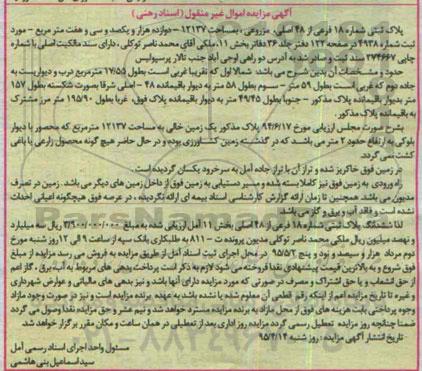 آگهی مزایده اموال غیر منقول (اسناد رهنی)
پلاک ثبتی شماره ۱۸ فرعی از ۴۸ اصلی، مزروعی، بمساحت ۱۲۱۳۷- دوازده هزار و یکصد و سی و هفت متر مربع - مورد
ثبت شماره ۴۹۳۸ در صفحه ۱۲۳ دفتر جلد ۳۶ دفاتر بخش ۱۱، ملکی آقای محمد ناصر توکلی، دارای سند مالکیت اصلی با شماره
چاپی ۲۷۴۶۶۷ سند ثبت و صادر شد به آدرس دو راهی اوجی آباد جنب تالار پرسپولیس
حدود و مشخصات آن بدین شرح می باشد: شمالا اول که تقریبا غربی است بطول ۱۷/۵۵ مترمربع درب و دیواریست به
جاده دوم که غربی است بطول ۵۹ متر - سوم بطول ۵۸ متر به دیوار باقیمانده ۴۸ - اصلی شرقا بصورت شکسته بطول ۱۵۷
متر بدیوار باقیمانده پلاک مذکور - جنوبا بطول ۴۹/۴۵ متر به دیوار باقیمانده پلاک فوق، غربا بطول ۱۹۵/۹۰ متر مرز مشترک
به باقیمانده پلاک مذکور.
بشرح صورت مجلس ارزیابی مورخ ۹۴/۶/۱۷ پلاک مذکور یک زمین خالی به مساحت ۱۲۱۳۷ مترمربع که محصور با دیوار
بلوکی به ارتفاع حدود ۲ متر می باشد که در گذشته زمین کشاورزی بوده و در حال حاضر هیچ گونه محصول زارعی یا باغی
کشت نمی گردد.
در زمین فوق خاکریز شده و تراز آن با تراز جاده آمل به سرخرود یکسان گردیده است.
راه ورودی به زمین فوق نیز کاملا بسته شده و مسیر دستیابی به زمین فوق از داخل زمین های دیگر می باشد. زمین در تصرف
مدیون می باشد. همچنین تا زمان ارائه گزارش کارشناسی اسناد بیمه ای ارائه نگردیده، در عرصه فوق هیچگونه اعیانی احداث
نشده است و فاقد آب و برق و گاز می باشد.
لذا ششدانگ پلاک ثبتی شماره ۱۸ فرعی از ۴۸ اصلی بخش ۱۱ آمل ارزیابی شده به مبلغ ریال سه میلیارد
و نهصد میلیون ریال ملکی محمد ناصر توکلی مدیون پرونده ت - ۸۱۱ به طلبکاری بانک سپه از ساعت ۹ الی ۱۲ روز شنبه مورخ
دوم مرداد هزار و سیصد و نود و پنج ۹۵/۵/۲ در محل اجرای ثبت اسناد آمل از طریق مزایده به فروش می رسد مزایده از مبلغ
فوق شروع و به بالاترین قیمت پیشنهادی نقدا فروخته می شود لازم به ذکر است پرداخت بدهی های مربوط به آب، برق، گاز اعم
از حق انشعاب و یا حق اشتراک و مصرف در صورتی که مورد مزایده دارای آنها باشد و نیز بدهی های مالیاتی و عوارض شهرداری
و غیره تا تاریخ مزایده اعم از اینکه رقم قطعی آن معلوم شده یا نشده باشد به عهده برنده مزایده است و نیز در صورت وجود مازاد
وجوه پرداختی بابت هزینه های فوق از محل مازاد به برنده مزایده مسترد خواهد شد و نیم عشر و حق مزایده نقدا وصول می گردد
ضمنا چنانچه روز مزایده تعطیل رسمی گردد مزایده روز اداری بعد از تعطیلی در همان ساعت و مکان مقرر برگزار خواهد شد.
تاریخ انتشار آگهی مزایده: روز شنبه ۹۵/۴/۱۲
مسئولد واحد اجرای اسناد رسمی آمل
سید اسماعیل بنی هاشمی